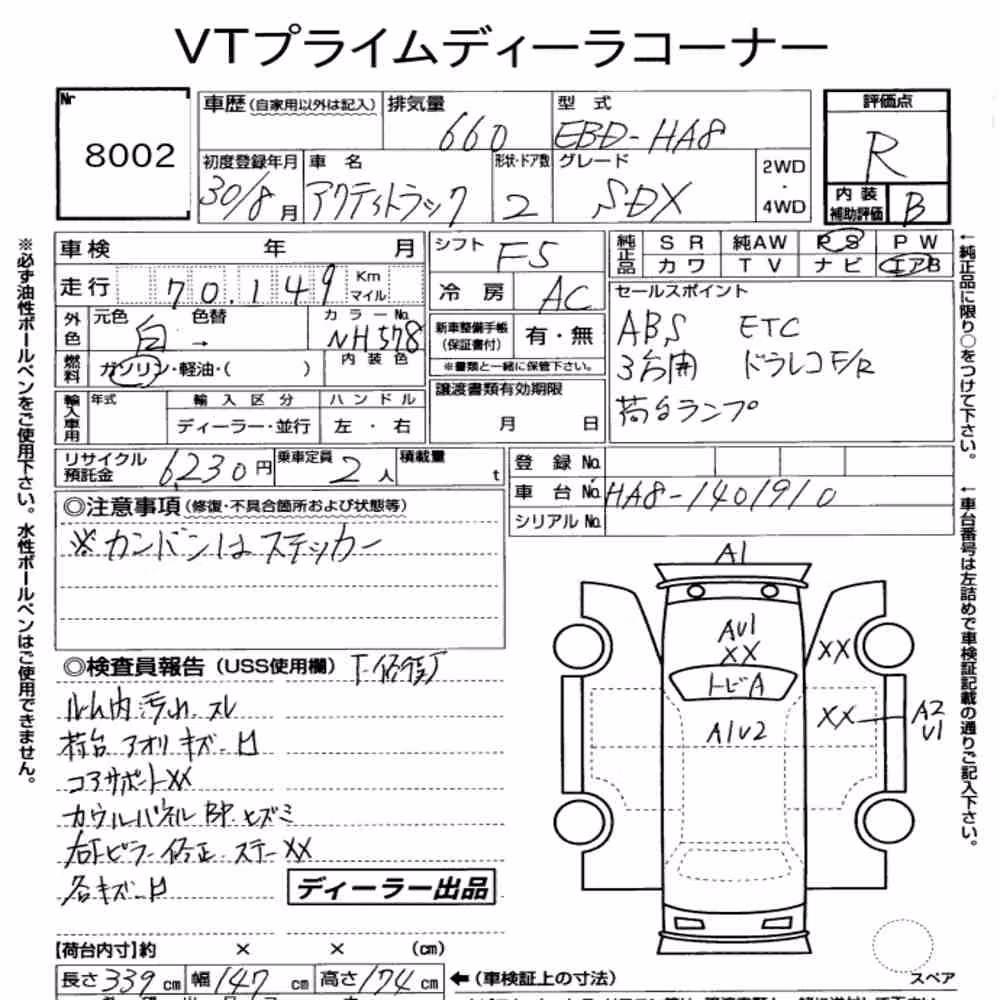 VTプライムディーラコーナー
Nr
8002
車歴(自家用以外は記入)
排気量
660
型式
EBD-HA8
評価点
R
内装
補助評価
B
初度登録年月
30/8月
車名
アクティトラック
形状・ドア数
2
グレード
SDX
2WD
・
4WD
車検 年 月
走行 70.149 Km
マイル
外色
元色
白
色替
→
カラーNo.
NH578
燃料
ガソリン・軽油・( )
内装色
輸入車用
年式
輸入区分
ディーラー・並行
ハンドル
左・右
シフト
F5
冷房
AC
新車整備手帳
(保証書付)
有・無
※書類と一緒に保管下さい。
譲渡書類有効期限
月 日
純正品
SR 純AW PS PW
カワ TV ナビ エアB
セールスポイント
ABS ETC
3方開 ドラレコF/R
荷台ランプ
リサイクル
預託金
6230円
乗車定員
2人
積載量
t
登録No.
車台No. HA8-1401910
シリアルNo.
◎注意事項(修復・不具合箇所および状態等)
※カンバンはステッカー
◎検査員報告(USS使用欄)
ルーム内汚れ.スレ
荷台アオリキズ-凹
コアサポートXX
カウルパネルBP.ヒズミ
右Fピラー修正.ステーXX
各キズ-凹
ディーラー出品
A1
AU1
XX
XX
トビA
A1U2
XX
A2
U1
スペア
【荷台内寸】約 × × (cm)
長さ339cm 幅147cm 高さ174cm
←(車検証上の寸法)
※必ず油性ボールペンをご使用下さい。水性ボールペンはご使用できません。
←純正品に限り○をつけて下さい。
←車台番号は左詰めで車検証記載の通りご記入下さい。